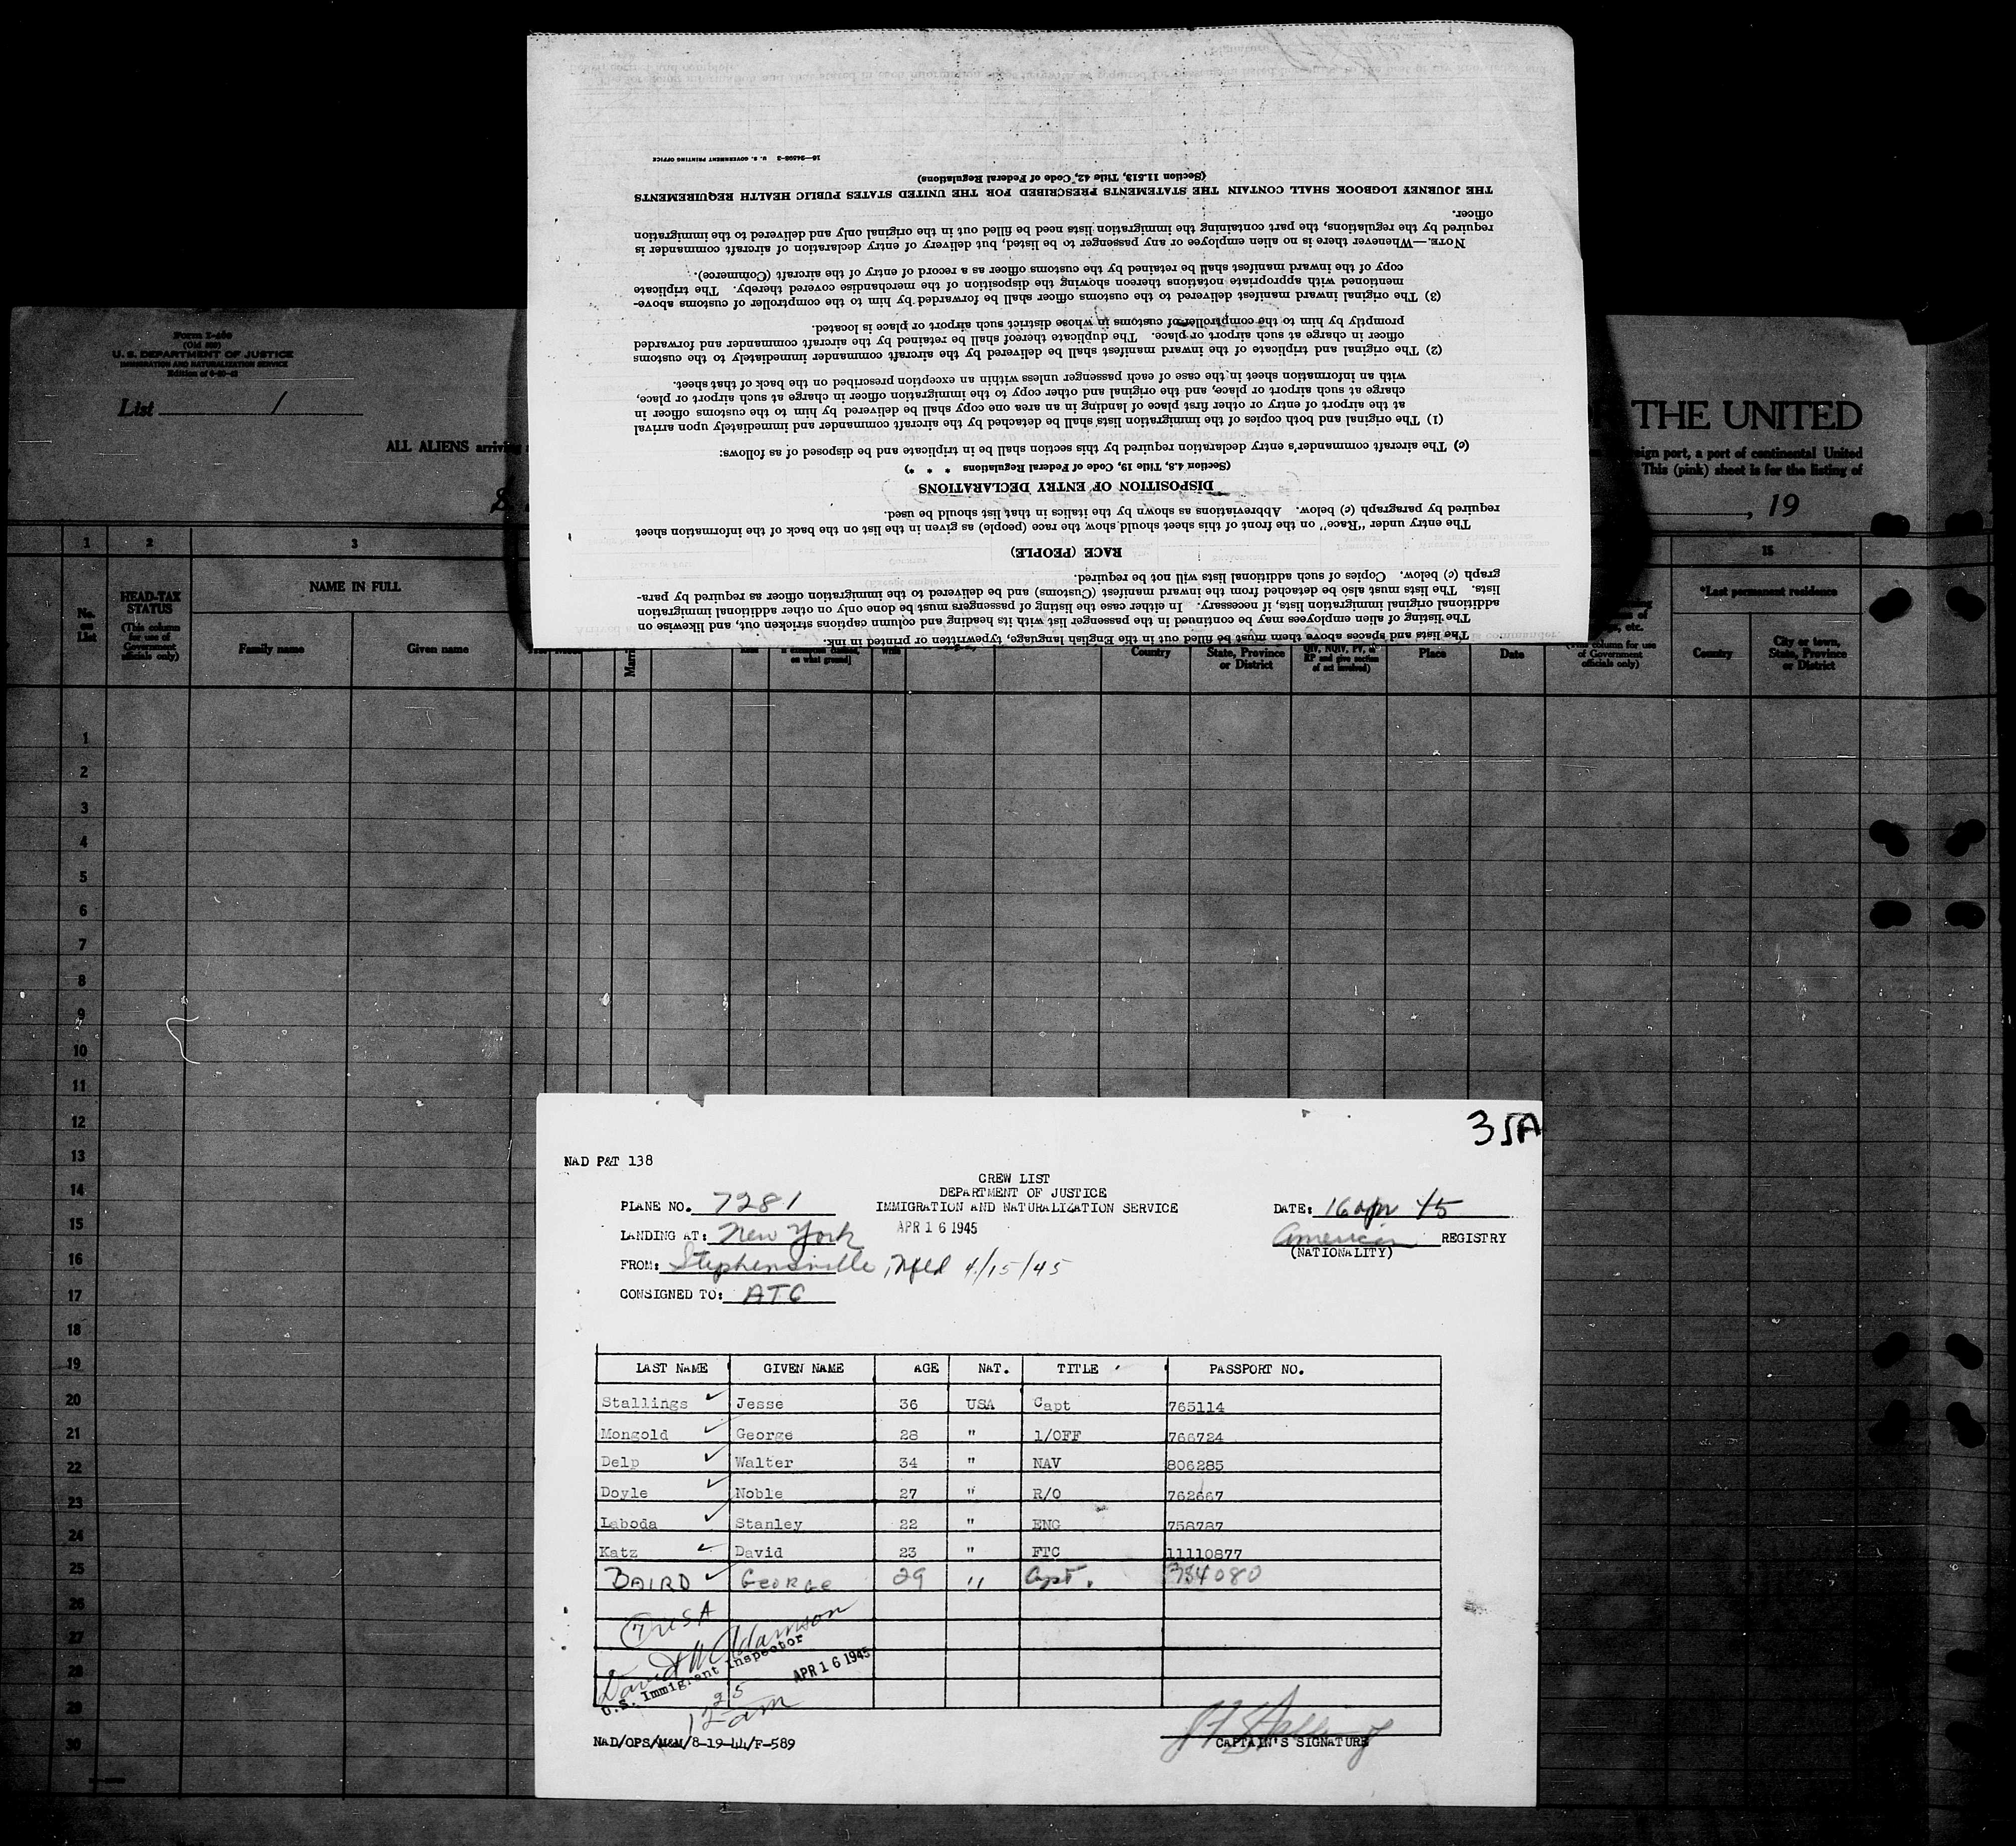 16—24598-3 U. S. GOVERNMENT PRINTING OFFICE
The lists and spaces above them must be filled out in the English language, typewritten or printed in ink.
The listing of alien employees may be continued in the passenger list with its heading and column captions stricken out, and likewise on
additional original immigration lists, if necessary. In either case the listing of passengers must be done only on other additional immigration
lists. The lists must also be detached from the inward manifest (Customs) and be delivered to the immigration officer as required by para-
graph (c) below. Copies of such additional lists will not be required.
RACE (PEOPLE)
The entry under "Race" on the front of this sheet should show the race (people) as given in the list on the back of the information sheet
required by paragraph (c) below. Abbreviations as shown by the italics in that list should be used.
DISPOSITION OF ENTRY DECLARATIONS
(Section 4.8, Title 19, Code of Federal Regulations * * *)
(c) The aircraft commander's entry declaration required by this section shall be in triplicate and be disposed of as follows:
(1) The original and both copies of the immigration lists shall be detached by the aircraft commander and immediately upon arrival
at the airport of entry or other first place of landing in an area one copy shall be delivered by him to the customs officer in
charge at such airport or place, and the original and other copy to the immigration officer in charge at such airport or place,
with an information sheet in the case of each passenger unless within an exception prescribed on the back of that sheet.
(2) The original and triplicate of the inward manifest shall be delivered by the aircraft commander immediately to the customs
officer in charge at such airport or place. The duplicate thereof shall be retained by the aircraft commander and forwarded
promptly by him to the comptroller of customs in whose district such airport or place is located.
(3) The original inward manifest delivered to the customs officer shall be forwarded by him to the comptroller of customs above-
mentioned with appropriate notations thereon showing the disposition of the merchandise covered thereby. The triplicate
copy of the inward manifest shall be retained by the customs officer as a record of entry of the aircraft (Commerce).
NOTE.—Whenever there is no alien employee or any passenger to be listed, but delivery of entry declaration of aircraft commander is
required by the regulations, the part containing the immigration lists need be filled out in the original only and delivered to the immigration
officer.
THE JOURNEY LOGBOOK SHALL CONTAIN THE STATEMENTS PRESCRIBED FOR THE UNITED STATES PUBLIC HEALTH REQUIREMENTS
(Section 11.513, Title 42, Code of Federal Regulations)
(Old 500)
U. S. DEPARTMENT OF JUSTICE
IMMIGRATION AND NATURALIZATION SERVICE
List 1
ALL ALIENS arriving
THE UNITED
eign port, a port of continental United
This (pink) sheet is for the listing of
, 19
1 2 3 15
No. on List
HEAD-TAX STATUS
(This column for use of Government officials only)
NAME IN FULL
Family name Given name
*Last permanent residence
Country State, Province or District
Place Date
of Government officials only)
Country City or town, State, Province or District
1
2
3
4
5
6
7
8
9
10
11
12
13
14
15
16
17
18
19
20
21
22
23
24
25
26
27
28
29
30
35A
NAD P&T 138
CREW LIST
DEPARTMENT OF JUSTICE
IMMIGRATION AND NATURALIZATION SERVICE
APR 16 1945
PLANE NO. 7281
DATE: 16 apr 45
LANDING AT: New York
American REGISTRY
(NATIONALITY)
FROM: Stephensville, Nfld 4/15/45
CONSIGNED TO: ATC
LAST NAME GIVEN NAME AGE NAT. TITLE PASSPORT NO.
Stallings Jesse 36 USA Capt 765114
Mongold George 28 " 1/OFF 766724
Delp Walter 34 " NAV 806285
Doyle Noble 27 " R/O 762667
Laboda Stanley 22 " ENG 758787
Katz David 23 " FTC 11110877
BAIRD GEORGE 29 " Capt. 734080
7 USA
David W Adamson
U.S. Immigrant Inspector
APR 16 1945
12 25 am
NAD/OPS/M&M/8-19-44/F-589
CAPTAIN'S SIGNATURE